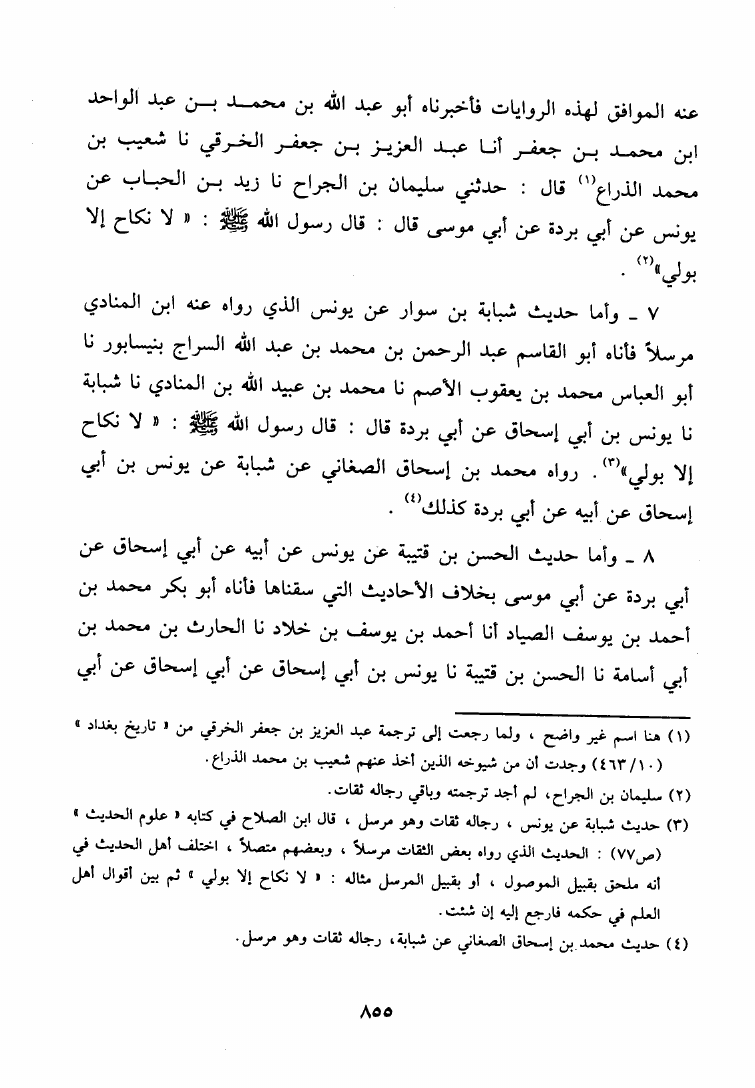 عنه الموافق لهذه الروايات فأخبرناه أبو عبد الله بن محمد بن عبد الواحد
ابن محمد بن جعفر أنا عبد العزيز بن جعفر الخرقي نا شعيب بن
محمد الذراع(١) قال : حدثني سليمان بن الجراح نا زيد بن الحباب عن
يونس عن أبي بردة عن أبي موسى قال : قال رسول الله ﷺ : « لا نكاح إلا
بولي»(٢) .
٧ ـ وأما حديث شبابة بن سوار عن يونس الذي رواه عنه ابن المنادي
مرسلاً فأناه أبو القاسم عبد الرحمن بن محمد بن عبد الله السراج بنيسابور نا
أبو العباس محمد بن يعقوب الأصم نا محمد بن عبيد الله بن المنادي نا شبابة
نا يونس بن أبي إسحاق عن أبي بردة قال : قال رسول الله ﷺ : « لا نكاح
إلا بولي»(٣) . رواه محمد بن إسحاق الصغاني عن شبابة عن يونس بن أبي
إسحاق عن أبيه عن أبي بردة كذلك(٤) .
٨ ـ وأما حديث الحسن بن قتيبة عن يونس عن أبيه عن أبي إسحاق عن
أبي بردة عن أبي موسى بخلاف الأحاديث التي سقناها فأناه أبو بكر محمد بن
أحمد بن يوسف الصياد أنا أحمد بن يوسف بن خلاد نا الحارث بن محمد بن
أبي أسامة نا الحسن بن قتيبة نا يونس بن أبي إسحاق عن أبي إسحاق عن أبي
(١) هنا اسم غير واضح ، ولما رجعت إلى ترجمة عبد العزيز بن جعفر الخرقي من « تاريخ بغداد »
(١٠/٤٦٣) وجدت أن من شيوخه الذين أخذ عنهم شعيب بن محمد الذراع.
(٢) سليمان بن الجراح، لم أجد ترجمته وباقي رجاله ثقات.
(٣) حديث شبابة عن يونس ، رجاله ثقات وهو مرسل ، قال ابن الصلاح في كتابه « علوم الحديث »
(ص٧٧) : الحديث الذي رواه بعض الثقات مرسلاً ، وبعضهم متصلاً ، اختلف أهل الحديث في
أنه ملحق بقبيل الموصول ، أو بقبيل المرسل مثاله : « لا نكاح إلا بولي » ثم بين أقوال أهل
العلم في حكمه فارجع إليه إن شئت.
(٤) حديث محمد بن إسحاق الصغاني عن شبابة، رجاله ثقات وهو مرسل.
٨٥٥